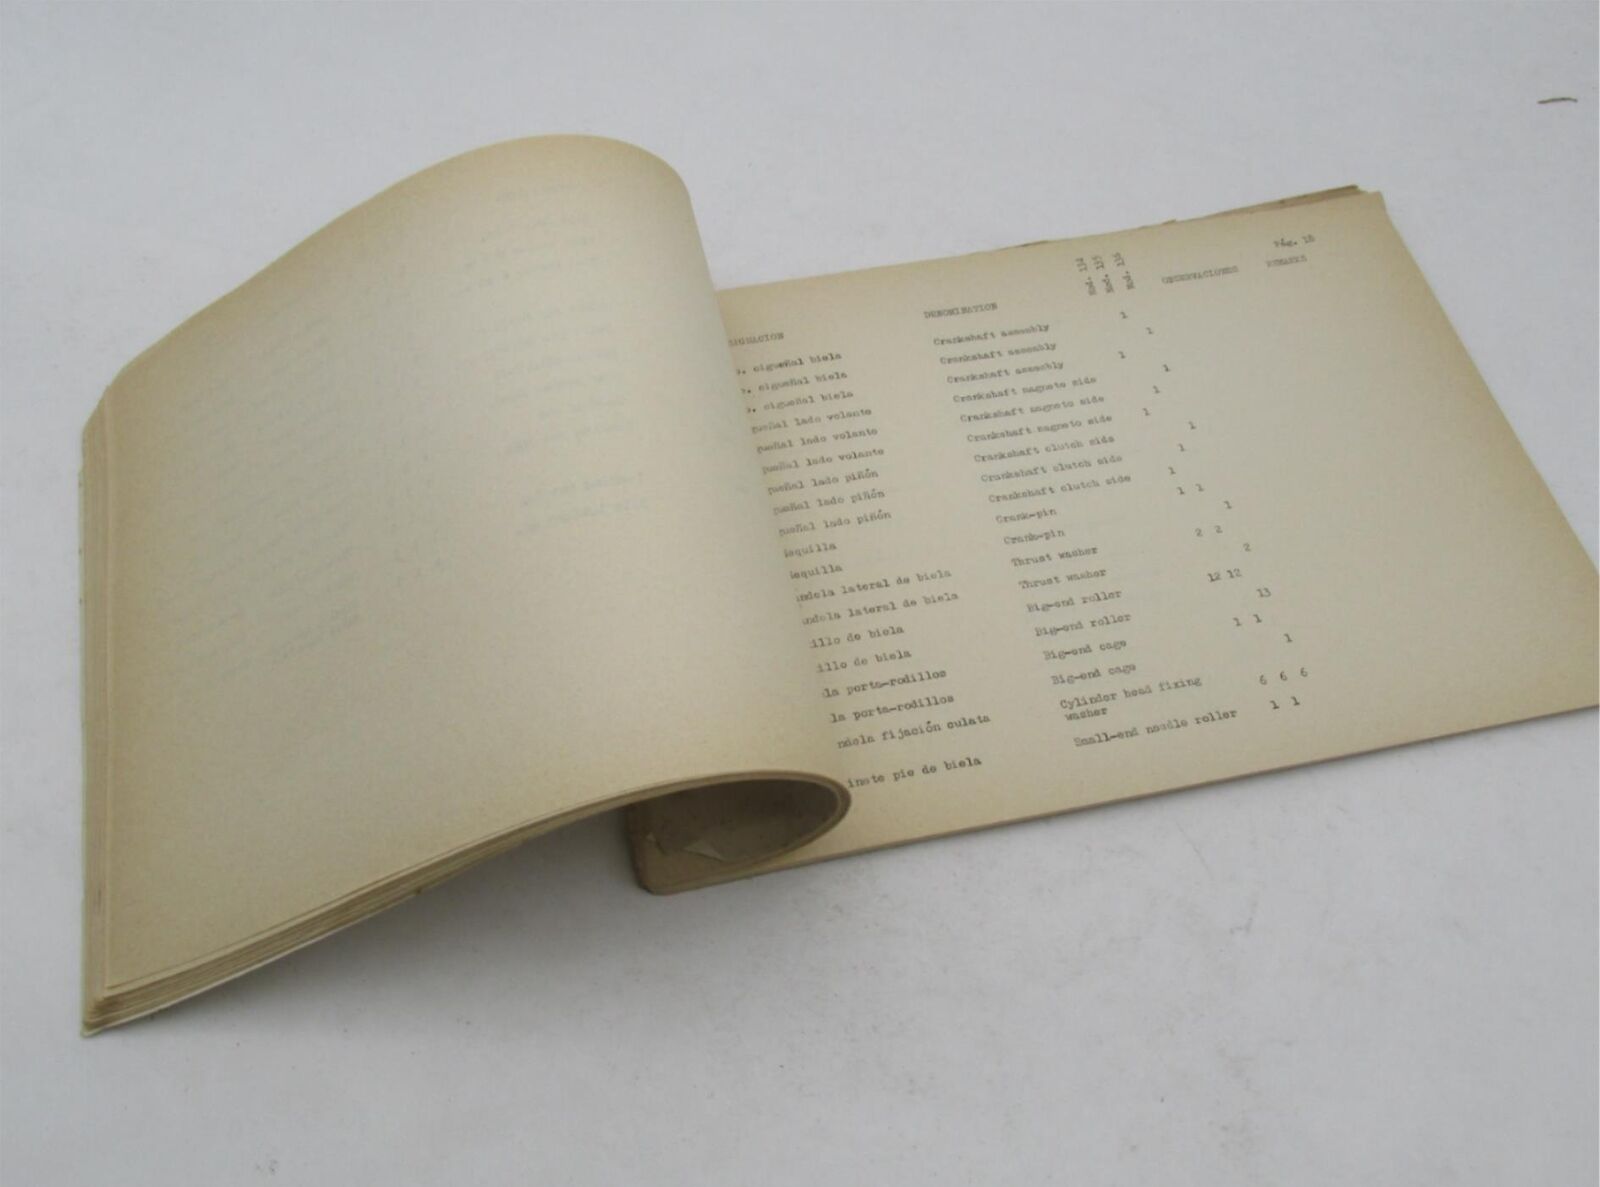 Pág. 18
DENOMINATION Mod. 134 Mod. 135 Mod. 136 OBSERVACIONES REMARKS
cigueñal biela Crankshaft assembly 1
cigueñal biela Crankshaft assembly 1
cigueñal biela Crankshaft assembly 1
gueñal lado volante Crankshaft magneto side 1
gueñal lado volante Crankshaft magneto side 1
gueñal lado volante Crankshaft magneto side 1
gueñal lado piñón Crankshaft clutch side 1
gueñal lado piñón Crankshaft clutch side 1
gueñal lado piñón Crankshaft clutch side 1
equilla Crank-pin 1 1
equilla Crank-pin 1
ndela lateral de biela Thrust washer 2 2
ndela lateral de biela Thrust washer 2
illo de biela Big-end roller 12 12
illo de biela Big-end roller 13
la porta-rodillos Big-end cage 1 1
la porta-rodillos Big-end cage 1
ndela fijación culata Cylinder head fixing 6 6 6
washer
inete pie de biela Small-end needle roller 1 1